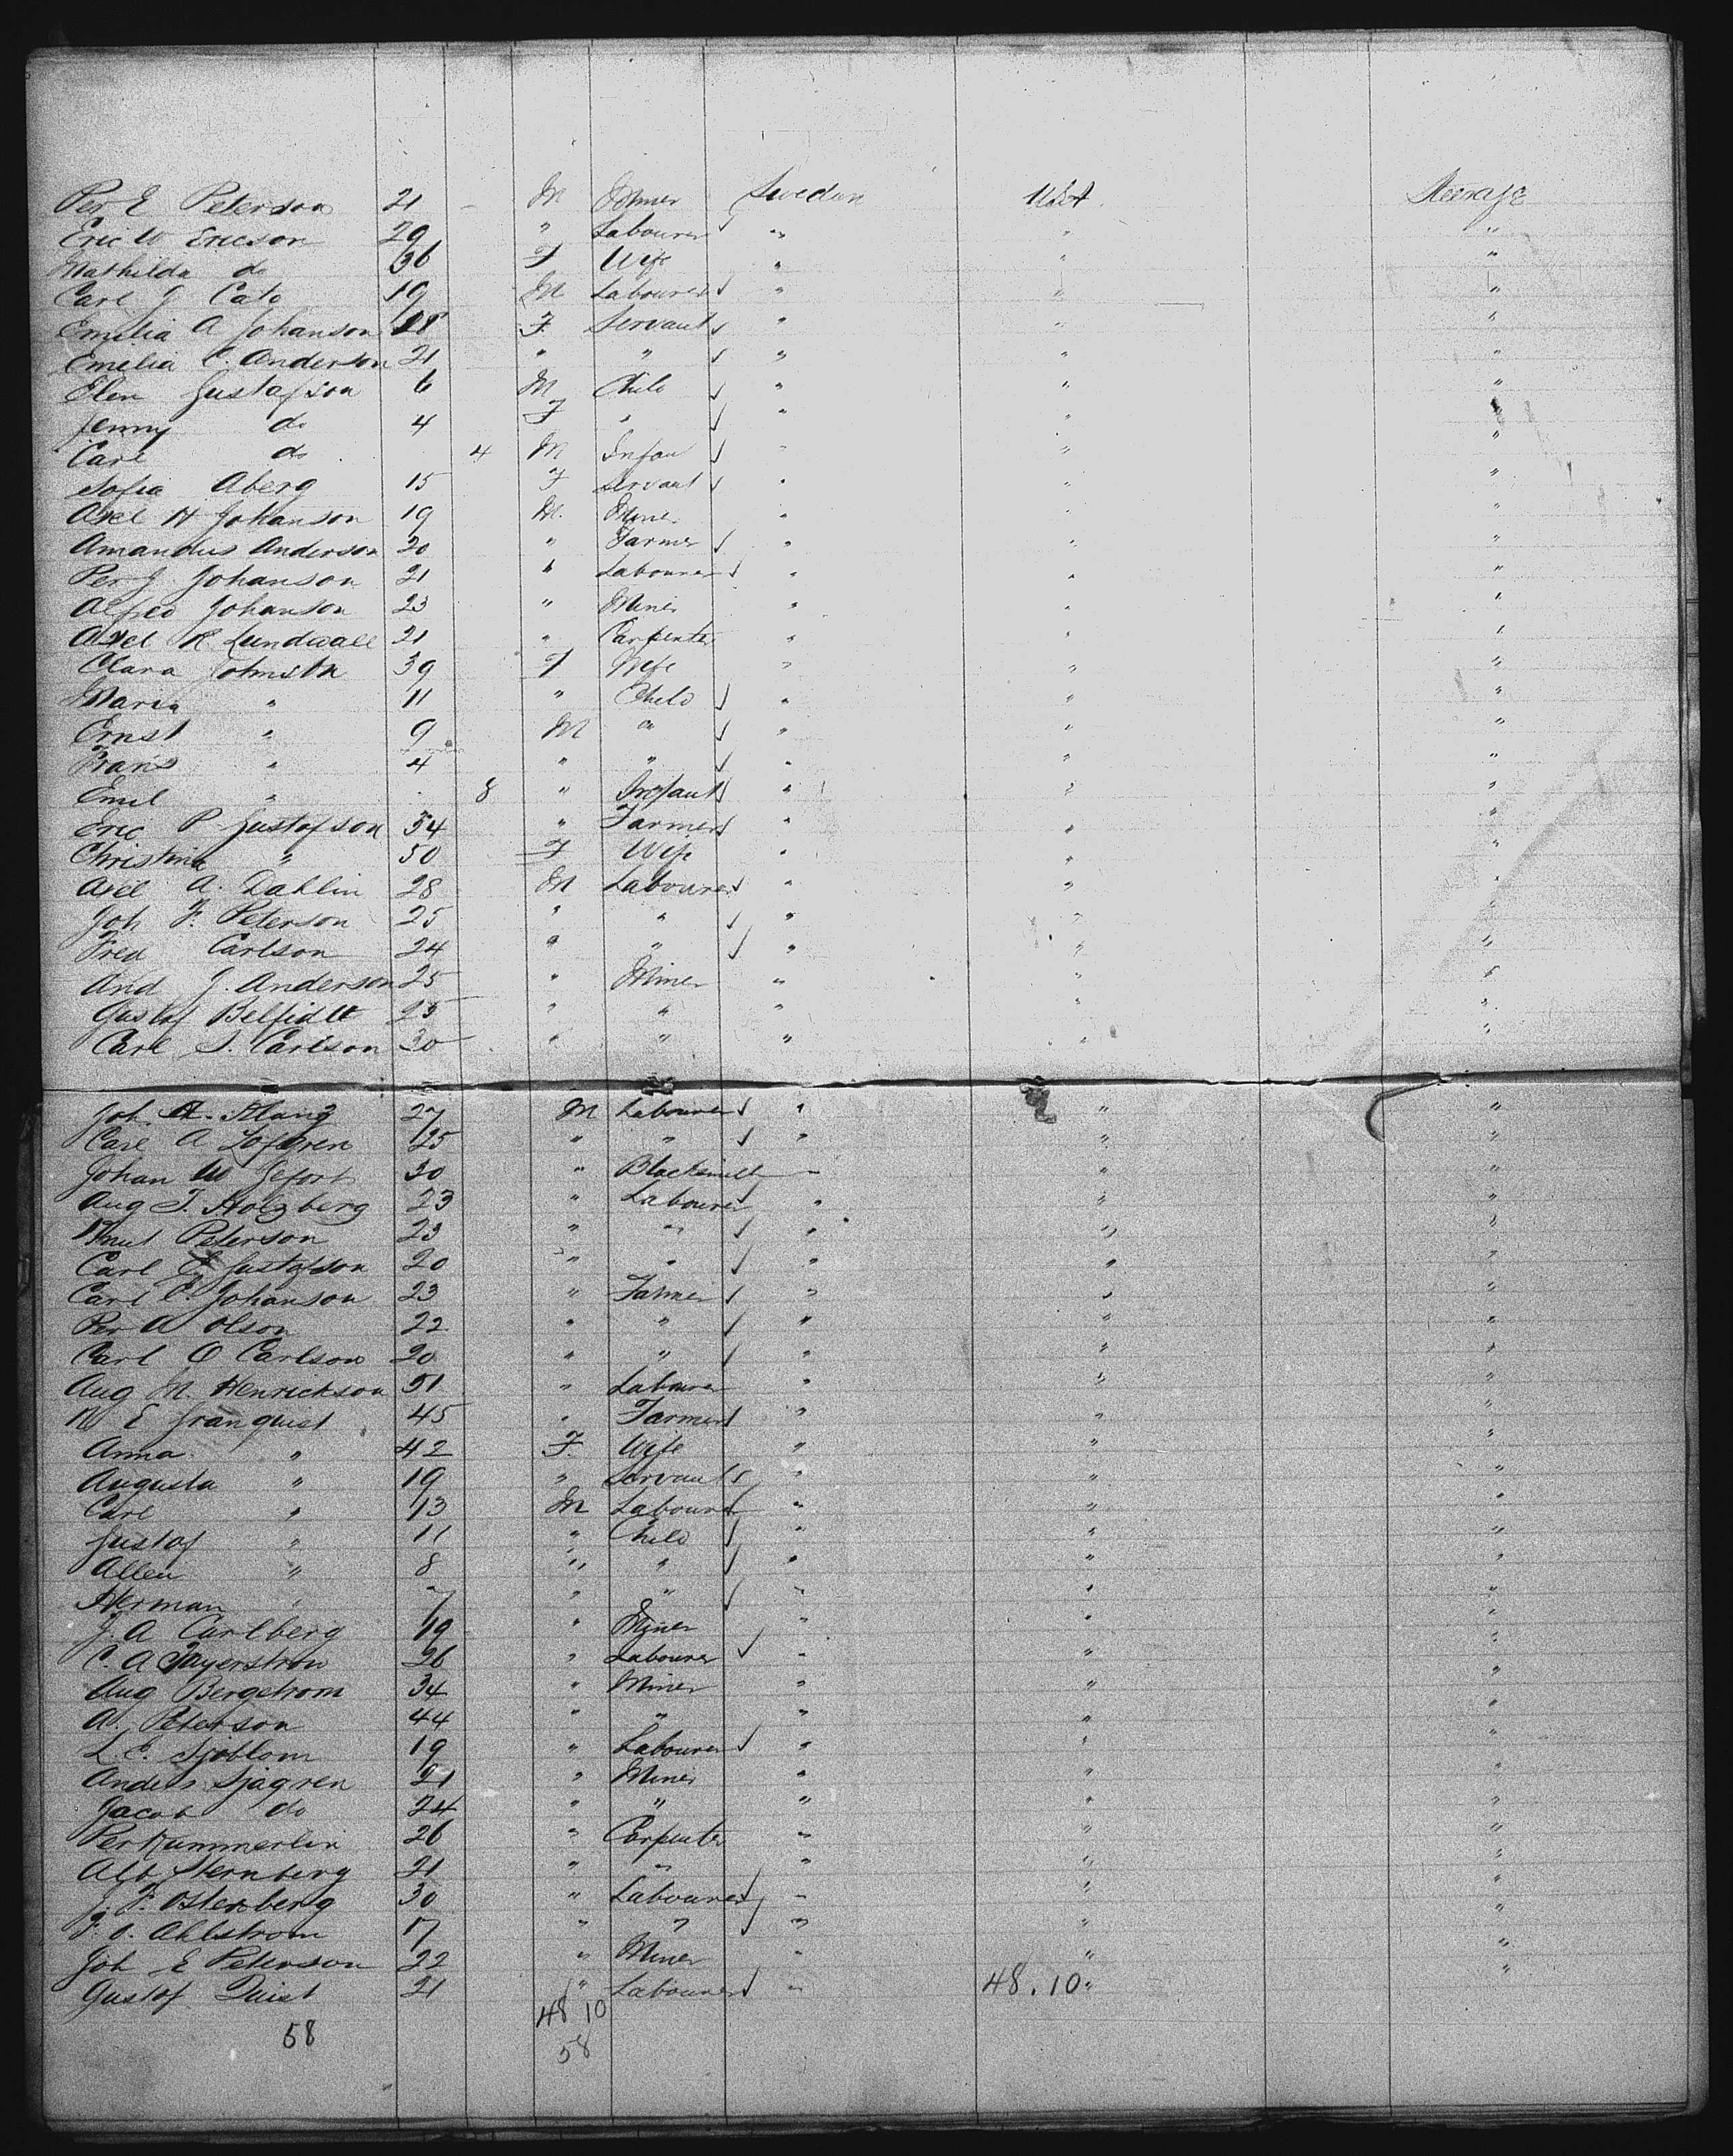 Per E Peterson 21 - M Miner Sweden USA Steerage
Eric W Ericson 29 " Labourer " " "
Mathilda do 36 F Wife " " "
Carl J Cato 19 M Labourer " " "
Emilia A Johanson 28 F. Servant " " "
Emelia C. Anderson 21 " " " " "
Elen Gustafson 6 M Child " " "
Jenny do 4 F " " " "
Carl do 4 M Infan " " "
Sofia Aberg 15 F Servant " " "
Axel H Johanson 19 M. Miner " " "
Amandus Anderson 20 " Farmer " " "
Per J Johanson 21 " Labourer " " "
Alfred Johanson 23 " Miner " " "
Axel R Lundwall 21 " Carpenter " " "
Clara 39 F Wife " " "
Maria " 11 " Child " " "
Ernst " 9 M " " " "
Frans " 4 " " " " "
Emil " 8 " Infant " " "
Eric P Gustafson 54 " Farmer " " "
Christina " 50 F Wife " " "
Axel A. Dahlin 28 M Labourer " " "
Joh F. Peterson 25 " " " " "
Fred Carlson 24 " " " " "
And J. Anderson 25 " Miner " " "
Gustaf 25 " " " " "
Carl S. Carlson 30 " " " " "
Joh. A. Klang 27 M Labourer " " "
Carl A Lofgren 25 " " " " "
Johan W 30 " Blacksmith " " "
Aug T. Holzberg 23 " Labourer " " "
Knut Peterson 23 " " " " "
Carl E Gustafson 20 " " " " "
Carl E. Johanson 23 " Farmer " " "
Per A Olson 22 " " " " "
Carl O Carlson 20 " " " " "
Aug M. Henrickson 51 " Labourer " " "
N E Granquist 45 " Farmer " " "
Anna " 42 F. Wife " " "
Augusta " 19 " Servant " " "
Carl " 13 M Labourer " " "
Gustaf " 11 " Child " " "
Allen " 8 " " " " "
Herman " 7 " " " " "
J. A Carlberg 19 " Miner " " "
C. A 26 " Labourer " " "
Aug Bergstrom 34 " Miner " " "
A. Peterson 44 " " " " "
L. E. Sjoblom 19 " Labourer " " "
Anders Sjagren 21 " Miner " " "
Jacob do 24 " " " " "
Per Kummerlin 26 " Carpenter " " "
Alb Sternberg 21 " " " " "
J. F. Osterberg 30 " Labourer " " "
F. O. Ahlstrom 17 " " " " "
Joh E Peterson 22 " Miner " " "
Gustaf Quist 21 " Labourer " 48.10 " "
48 10
58 58